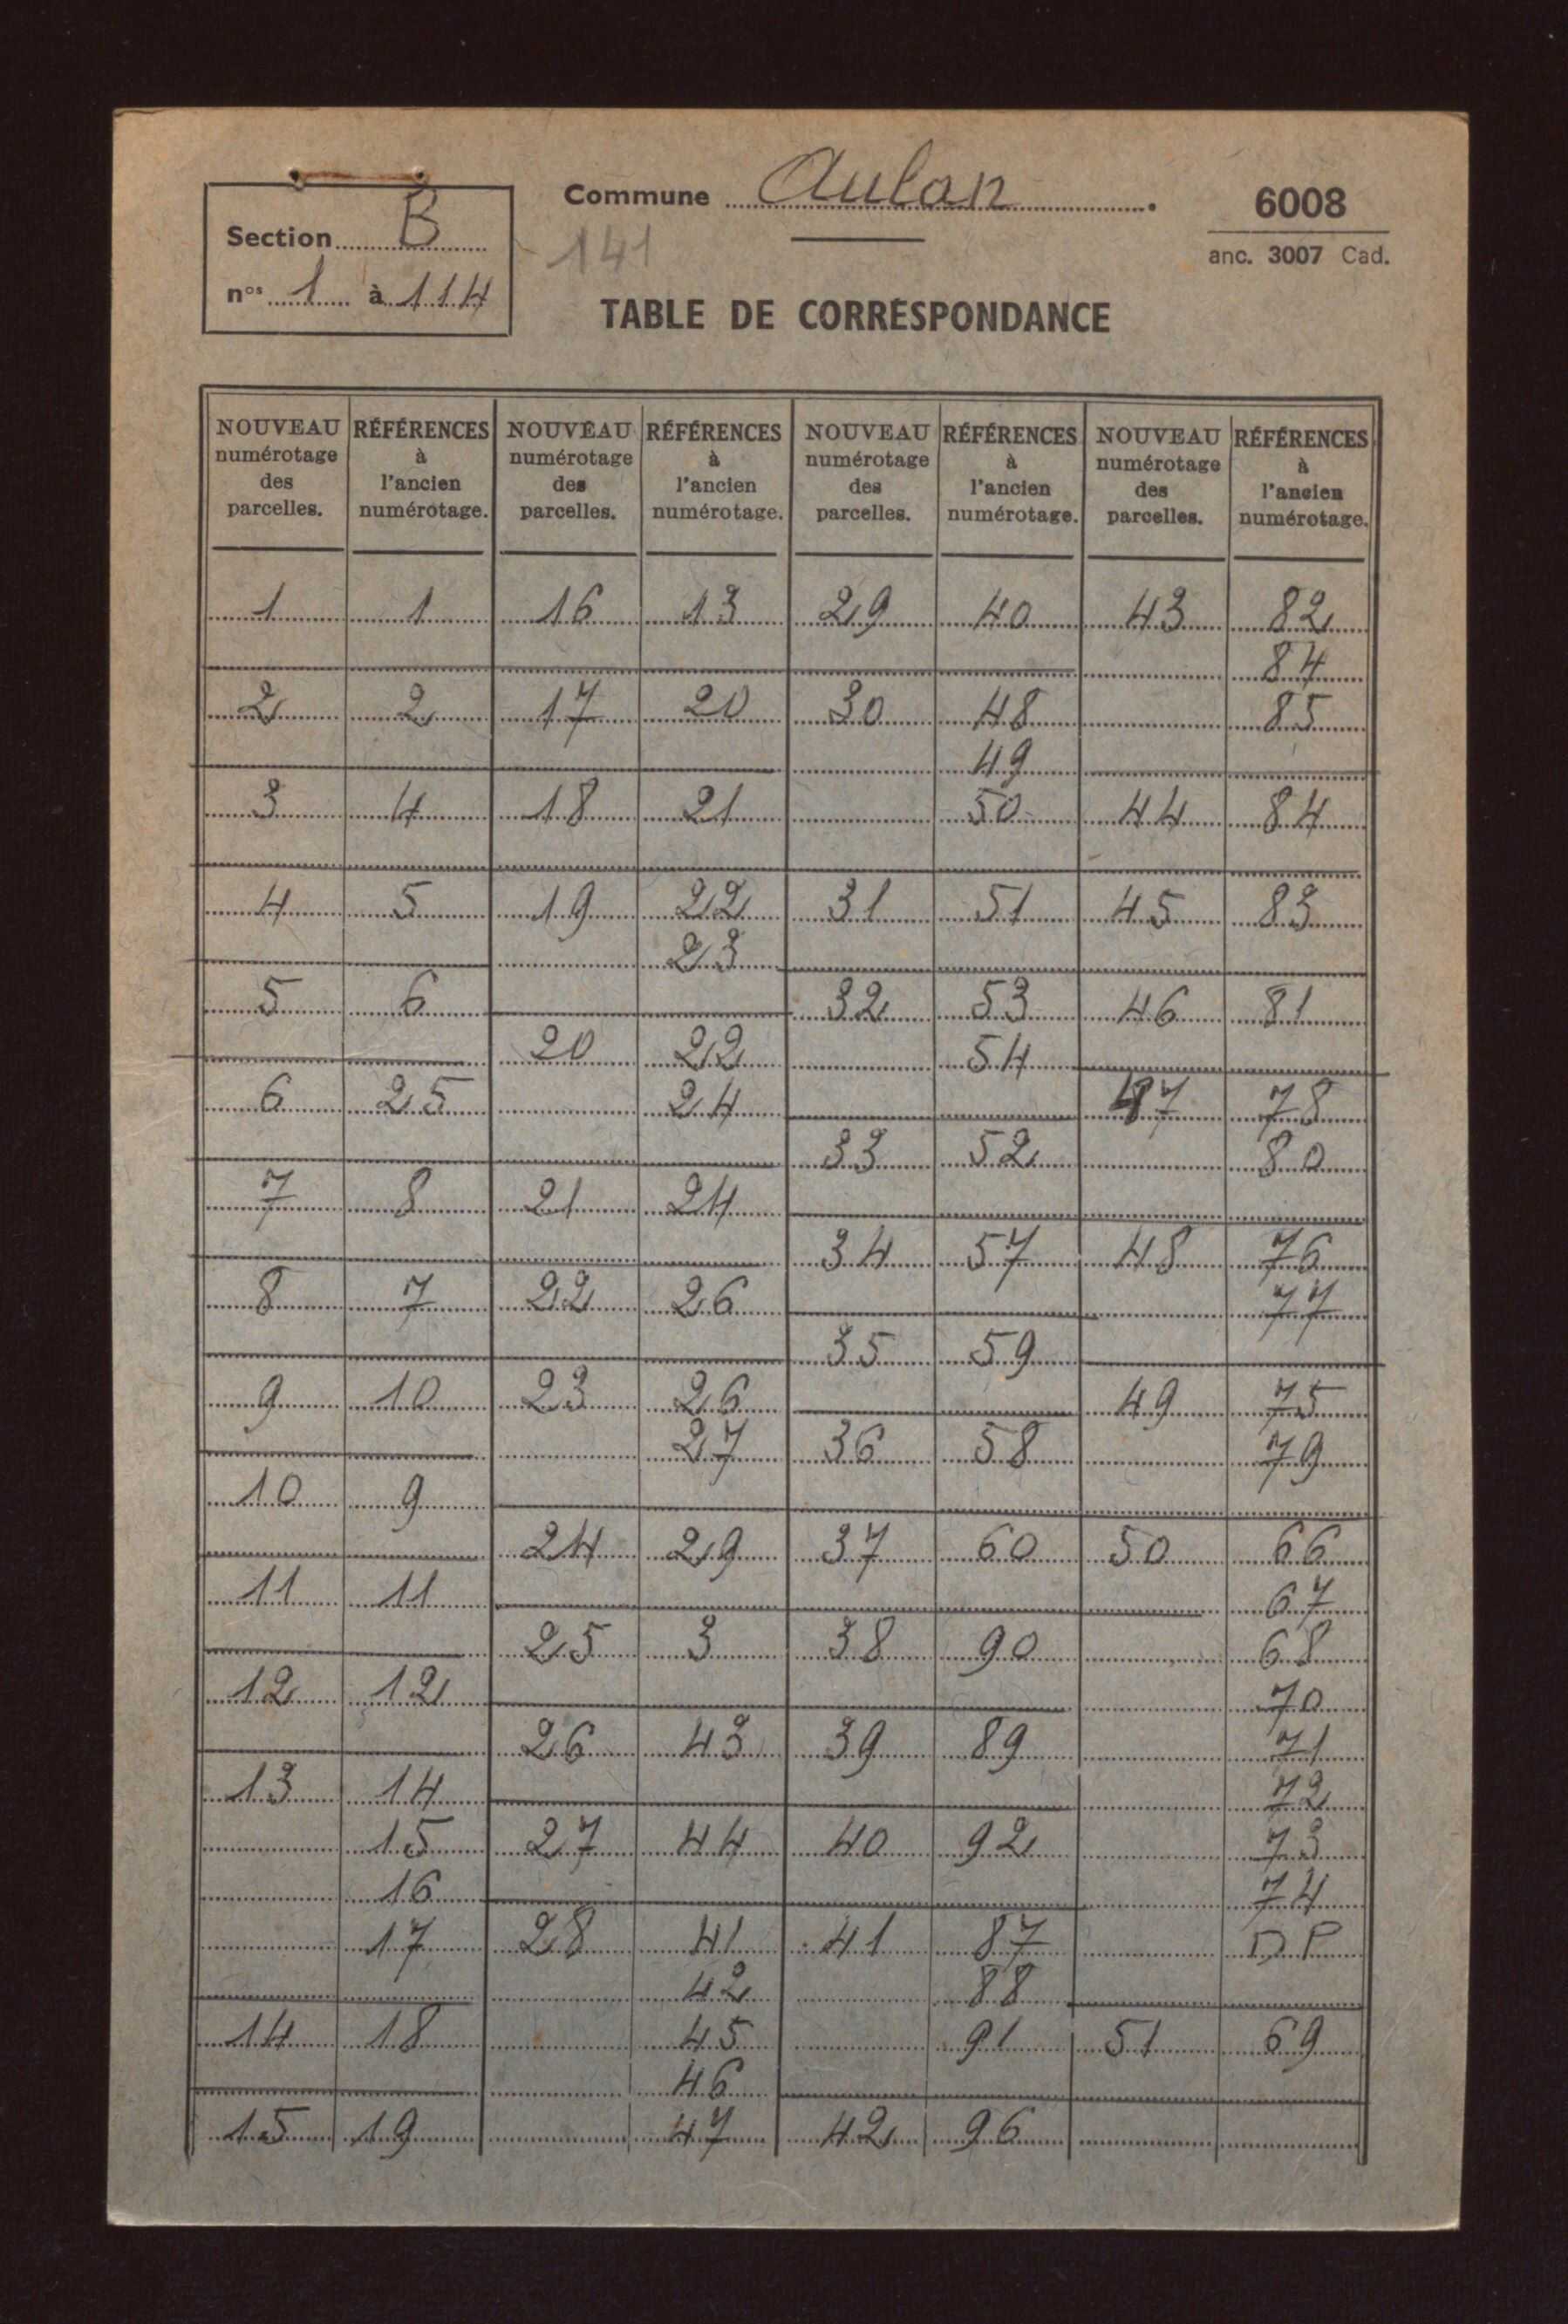 Section B
nos 1 à 114
Commune Aulan.
141
6008
anc. 3007 Cad.
TABLE DE CORRESPONDANCE
NOUVEAU numérotage des parcelles. RÉFÉRENCES à l'ancien numérotage. NOUVEAU numérotage des parcelles. RÉFÉRENCES à l'ancien numérotage. NOUVEAU numérotage des parcelles. RÉFÉRENCES à l'ancien numérotage. NOUVEAU numérotage des parcelles. RÉFÉRENCES à l'ancien numérotage.
1 1 16 13 29 40 43 82
84
2 2 17 20 30 48 85
49
3 4 18 21 50 44 84
4 5 19 22 31 51 45 83
23
5 6 32 53 46 81
20 22 54
6 25 24 47 78
33 52 80
7 8 21 24
34 57 48 76
8 7 22 26 77
35 59
9 10 23 26 49 75
27 36 58 79
10 9
24 29 37 60 50 66
11 11 67
25 3 38 90 68
12 12 70
26 43 39 89 71
13 14 72
15 27 44 40 92 73
16 74
17 28 41 41 87 D P
42 88
14 18 45 91 51 69
46
15 19 47 42 96